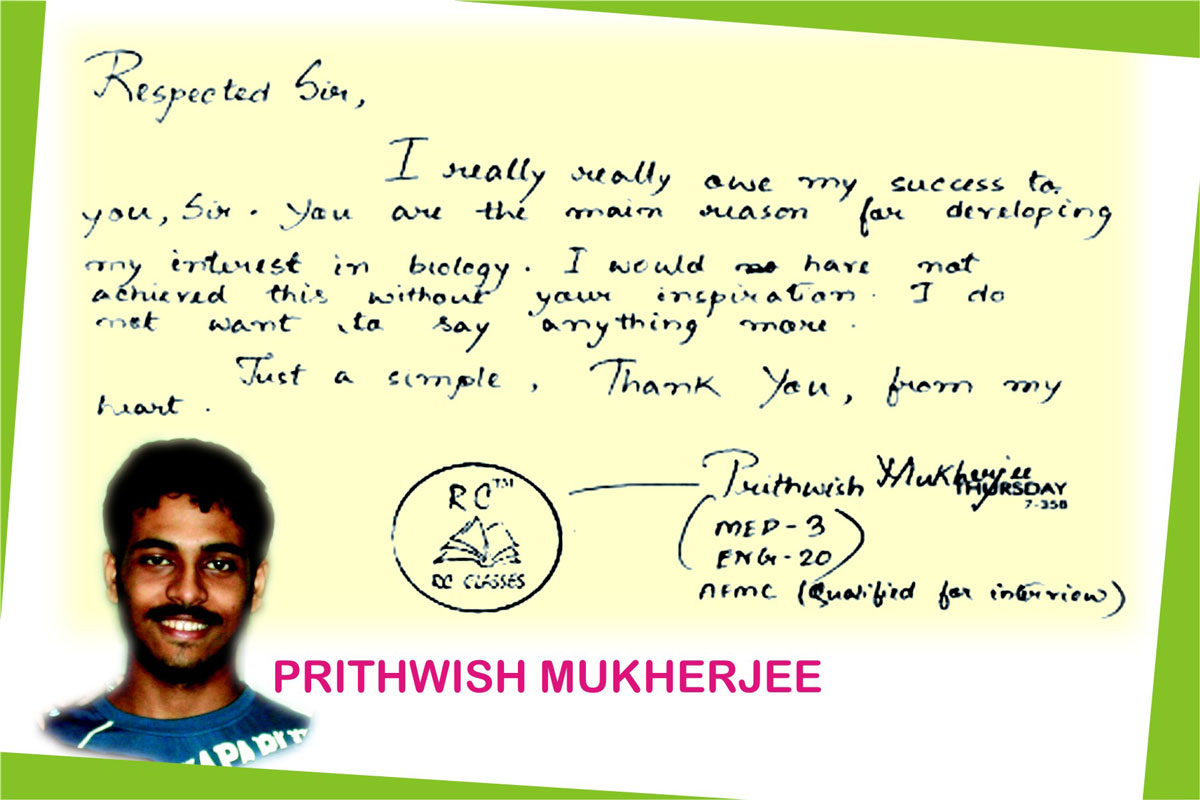 Respected Sir,
I really really owe my success to
you, Sir. You are the main reason for developing
my interest in biology. I would have not
achieved this without your inspiration. I do
not want to say anything more.
Just a simple, Thank You, from my
heart.
RC TM
RC CLASSES
Prithwish Mukherjee
THURSDAY
7-358
(MED-3
ENG-20)
AFMC (Qualified for interview)
PRITHWISH MUKHERJEE